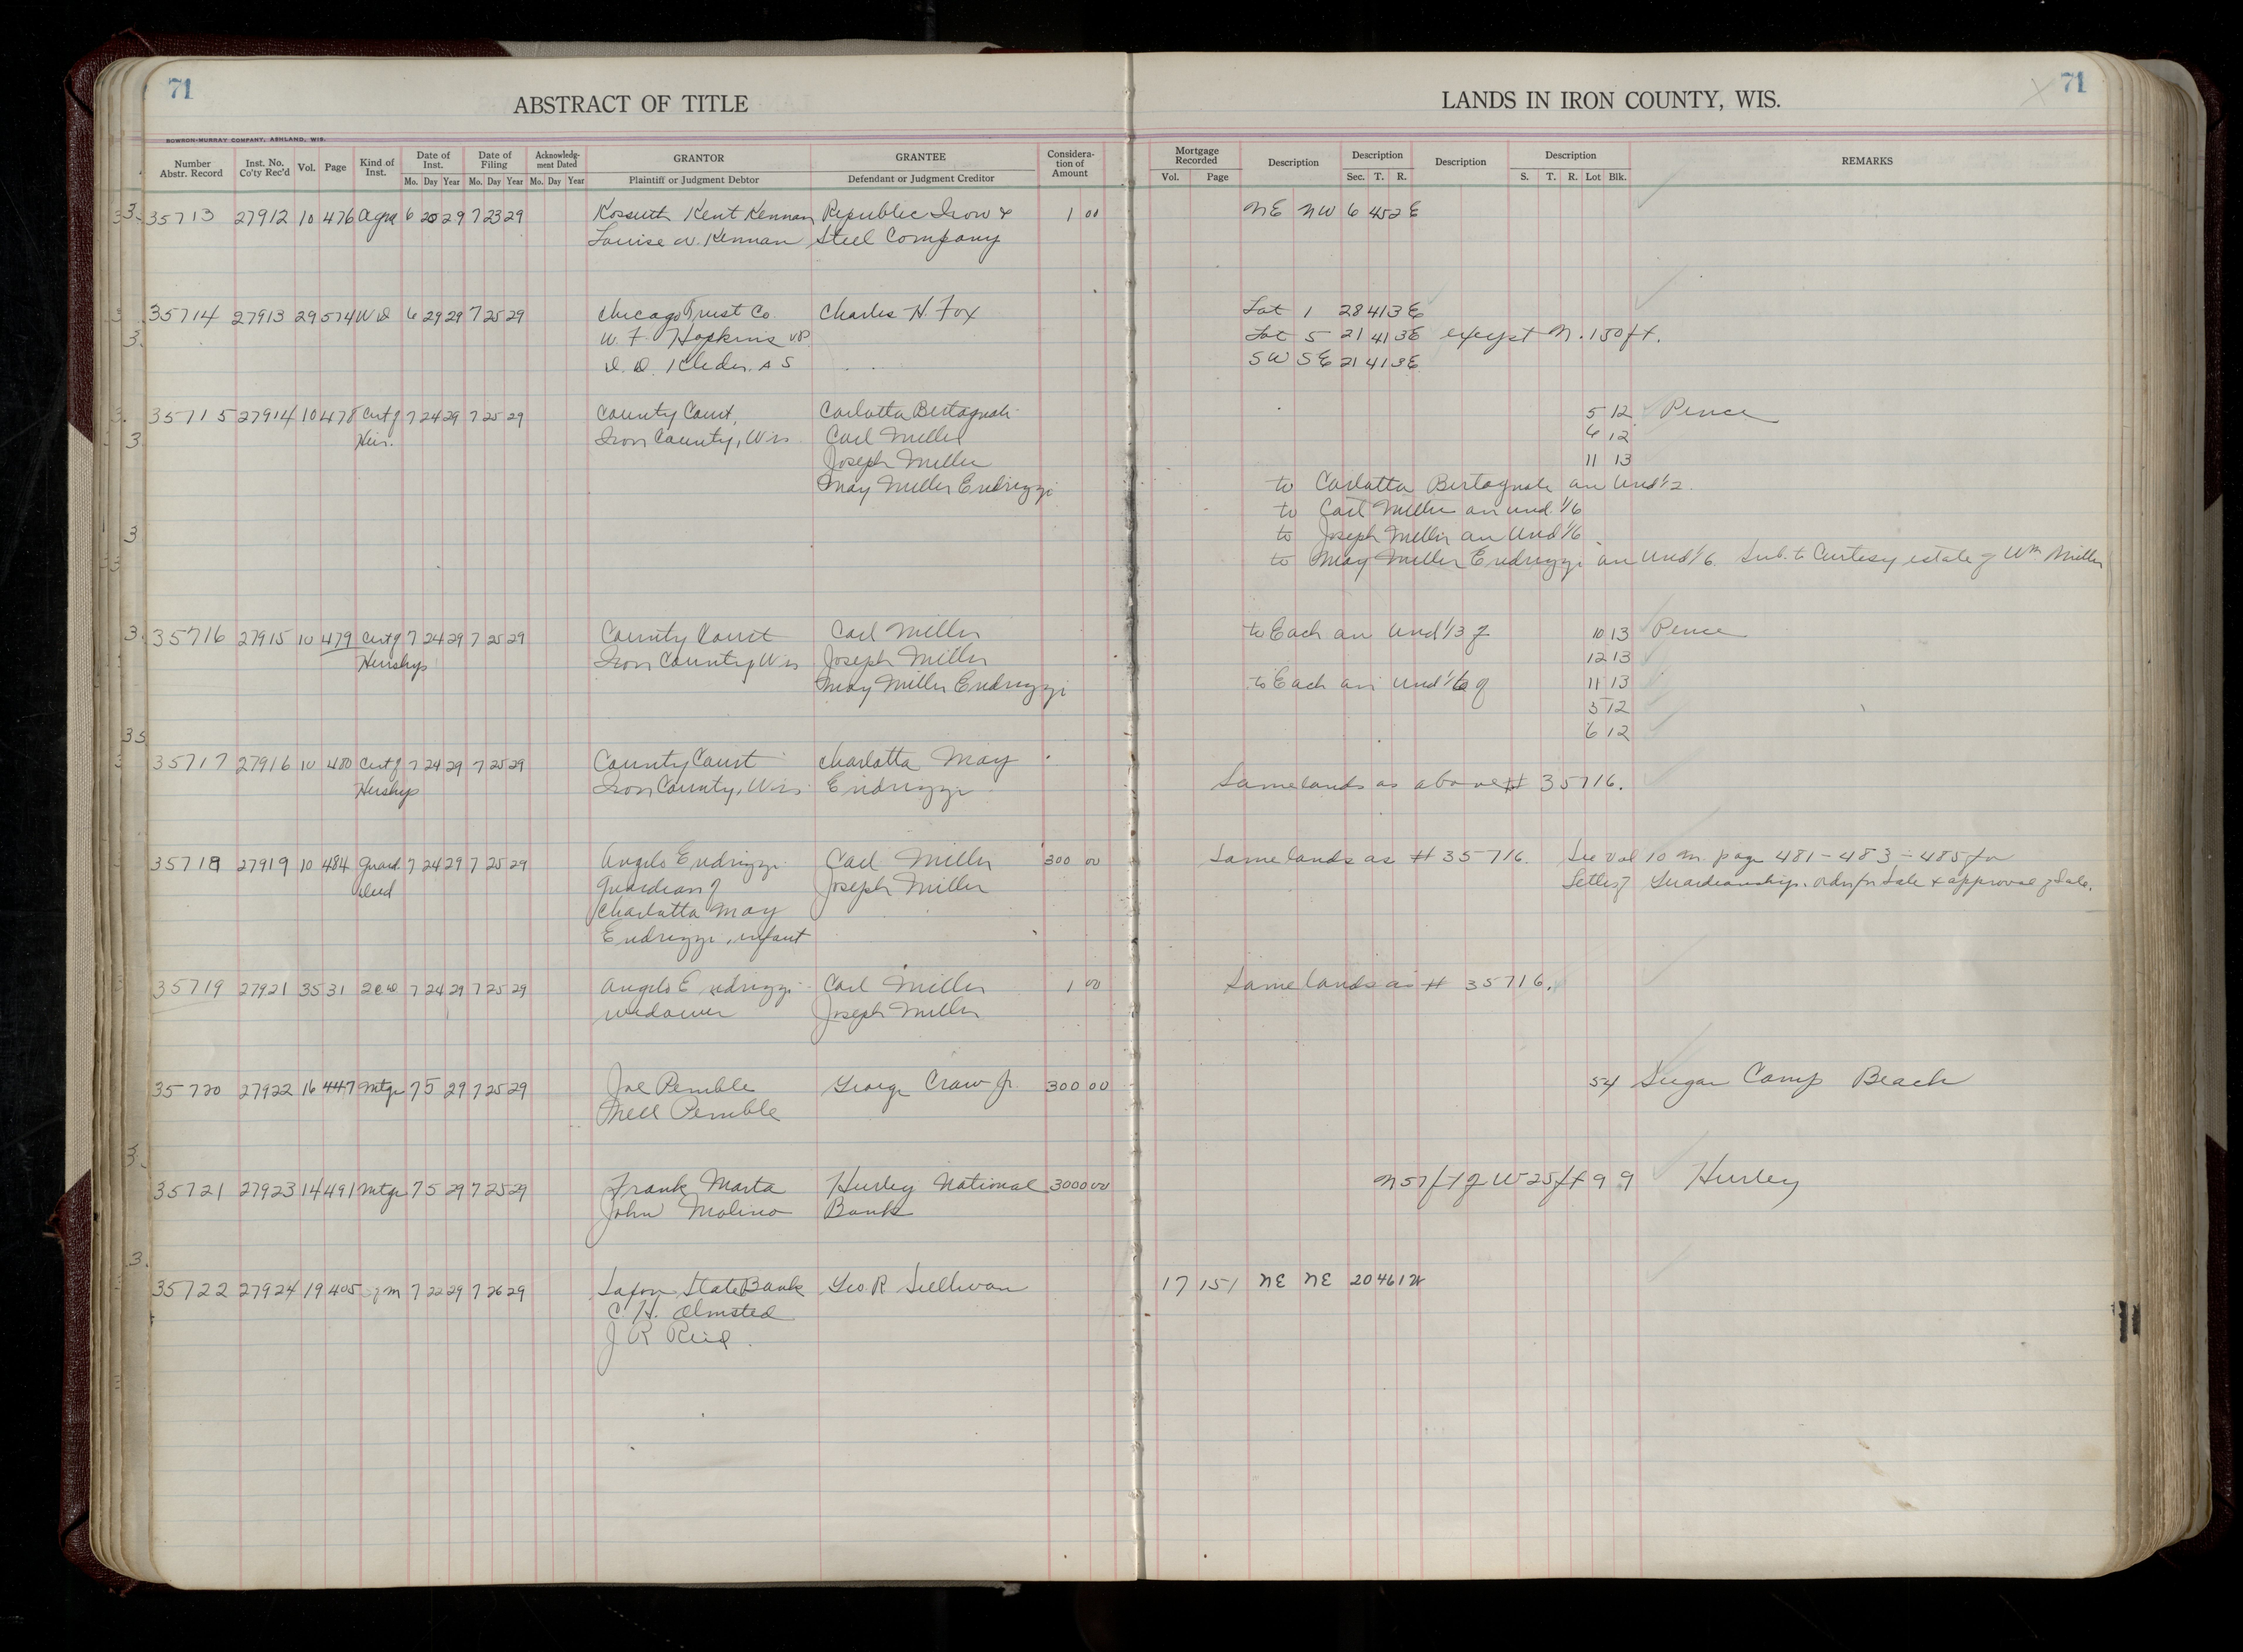 71
ABSTRACT OF TITLE
LANDS IN IRON COUNTY, WIS.
71
BOWRON-MURRAY COMPANY, ASHLAND, WIS.
Number Abstr. Record Inst. No. Co'ty Rec'd Vol. Page Kind of Inst. Date of Inst. Date of Filing Acknowledg-ment Dated GRANTOR GRANTEE Considera-tion of Amount Mortgage Recorded Description Description Description Description REMARKS
Mo. Day Year Mo. Day Year Mo. Day Year Plaintiff or Judgment Debtor Defendant or Judgment Creditor Vol. Page Sec. T. R. S. T. R. Lot Blk.
35713 27912 10 476 6 20 29 7 23 29 Kossuth Kent Kennan Republic Iron & 1 00 NE NW 6 45 2 E
Louise W. Kennan Steel Company
35714 27913 29 574 WD 6 29 29 7 25 29 Chicago Trust Co. Charles H. Fox Lot 1 28 41 3 E
W. F. Hopkins VP Lot 5 21 41 3 E except N. 150 ft.
A S SW SE 21 41 3 E
35715 27914 10 478 Cert of 7 24 29 7 25 29 County Court, Carlotta Bertagnoli 5 12 Pence
Heir. Iron County, Wis Carl Miller 6 12
Joseph Miller 11 13
May Miller Endrizzi to Carlotta Bertagnoli an Und 1/2.
to Carl Miller an und 1/6
to Joseph Miller an Und 1/6
to May Miller Endrizzi an Und 1/6. Sub. to Curtesy estate of Wm Miller
35716 27915 10 479 Cert of 7 24 29 7 25 29 County Court Carl Miller to Each an Und 1/3 of 10 13 Pence
Heirshp Iron County Wis Joseph Miller 12 13
May Miller Endrizzi to Each an Und 1/6 of 11 13
5 12
6 12
35717 27916 10 480 Cert of 7 24 29 7 25 29 County Court Charlotta May
Heirshp Iron County, Wis Endrizzi Same lands as above # 35716.
35718 27919 10 484 Guard. 7 24 29 7 25 29 Angelo Endrizzi Carl Miller 300 00 Same lands as # 35716. See Vol 10 M. page 481-483-485 for
Deed Guardian of Joseph Miller Letters of Guardianship. Order for Sale & approval of Sale.
Charlotta May
Endrizzi, infant
35719 27921 35 31 2CD 7 24 29 7 25 29 Angelo Endrizzi Carl Miller 1 00 Same lands as # 35716.
widower Joseph Miller
35720 27922 16 447 Mtge 7 5 29 7 25 29 Joe Pemble George Craw Jr. 300 00 54 Sugar Camp Beach
Nell Pemble
35721 27923 14 491 Mtge 7 5 29 7 25 29 Frank Marta Hurley National 3000 00 N 57 ft of W 25 ft 9 9 Hurley
John Molino Bank
35722 27924 19 405 7 22 29 7 26 29 Saxon State Bank Geo R Sullivan 17 151 NE NE 20 46 1 W
C. H. Olmsted
J R Reid.